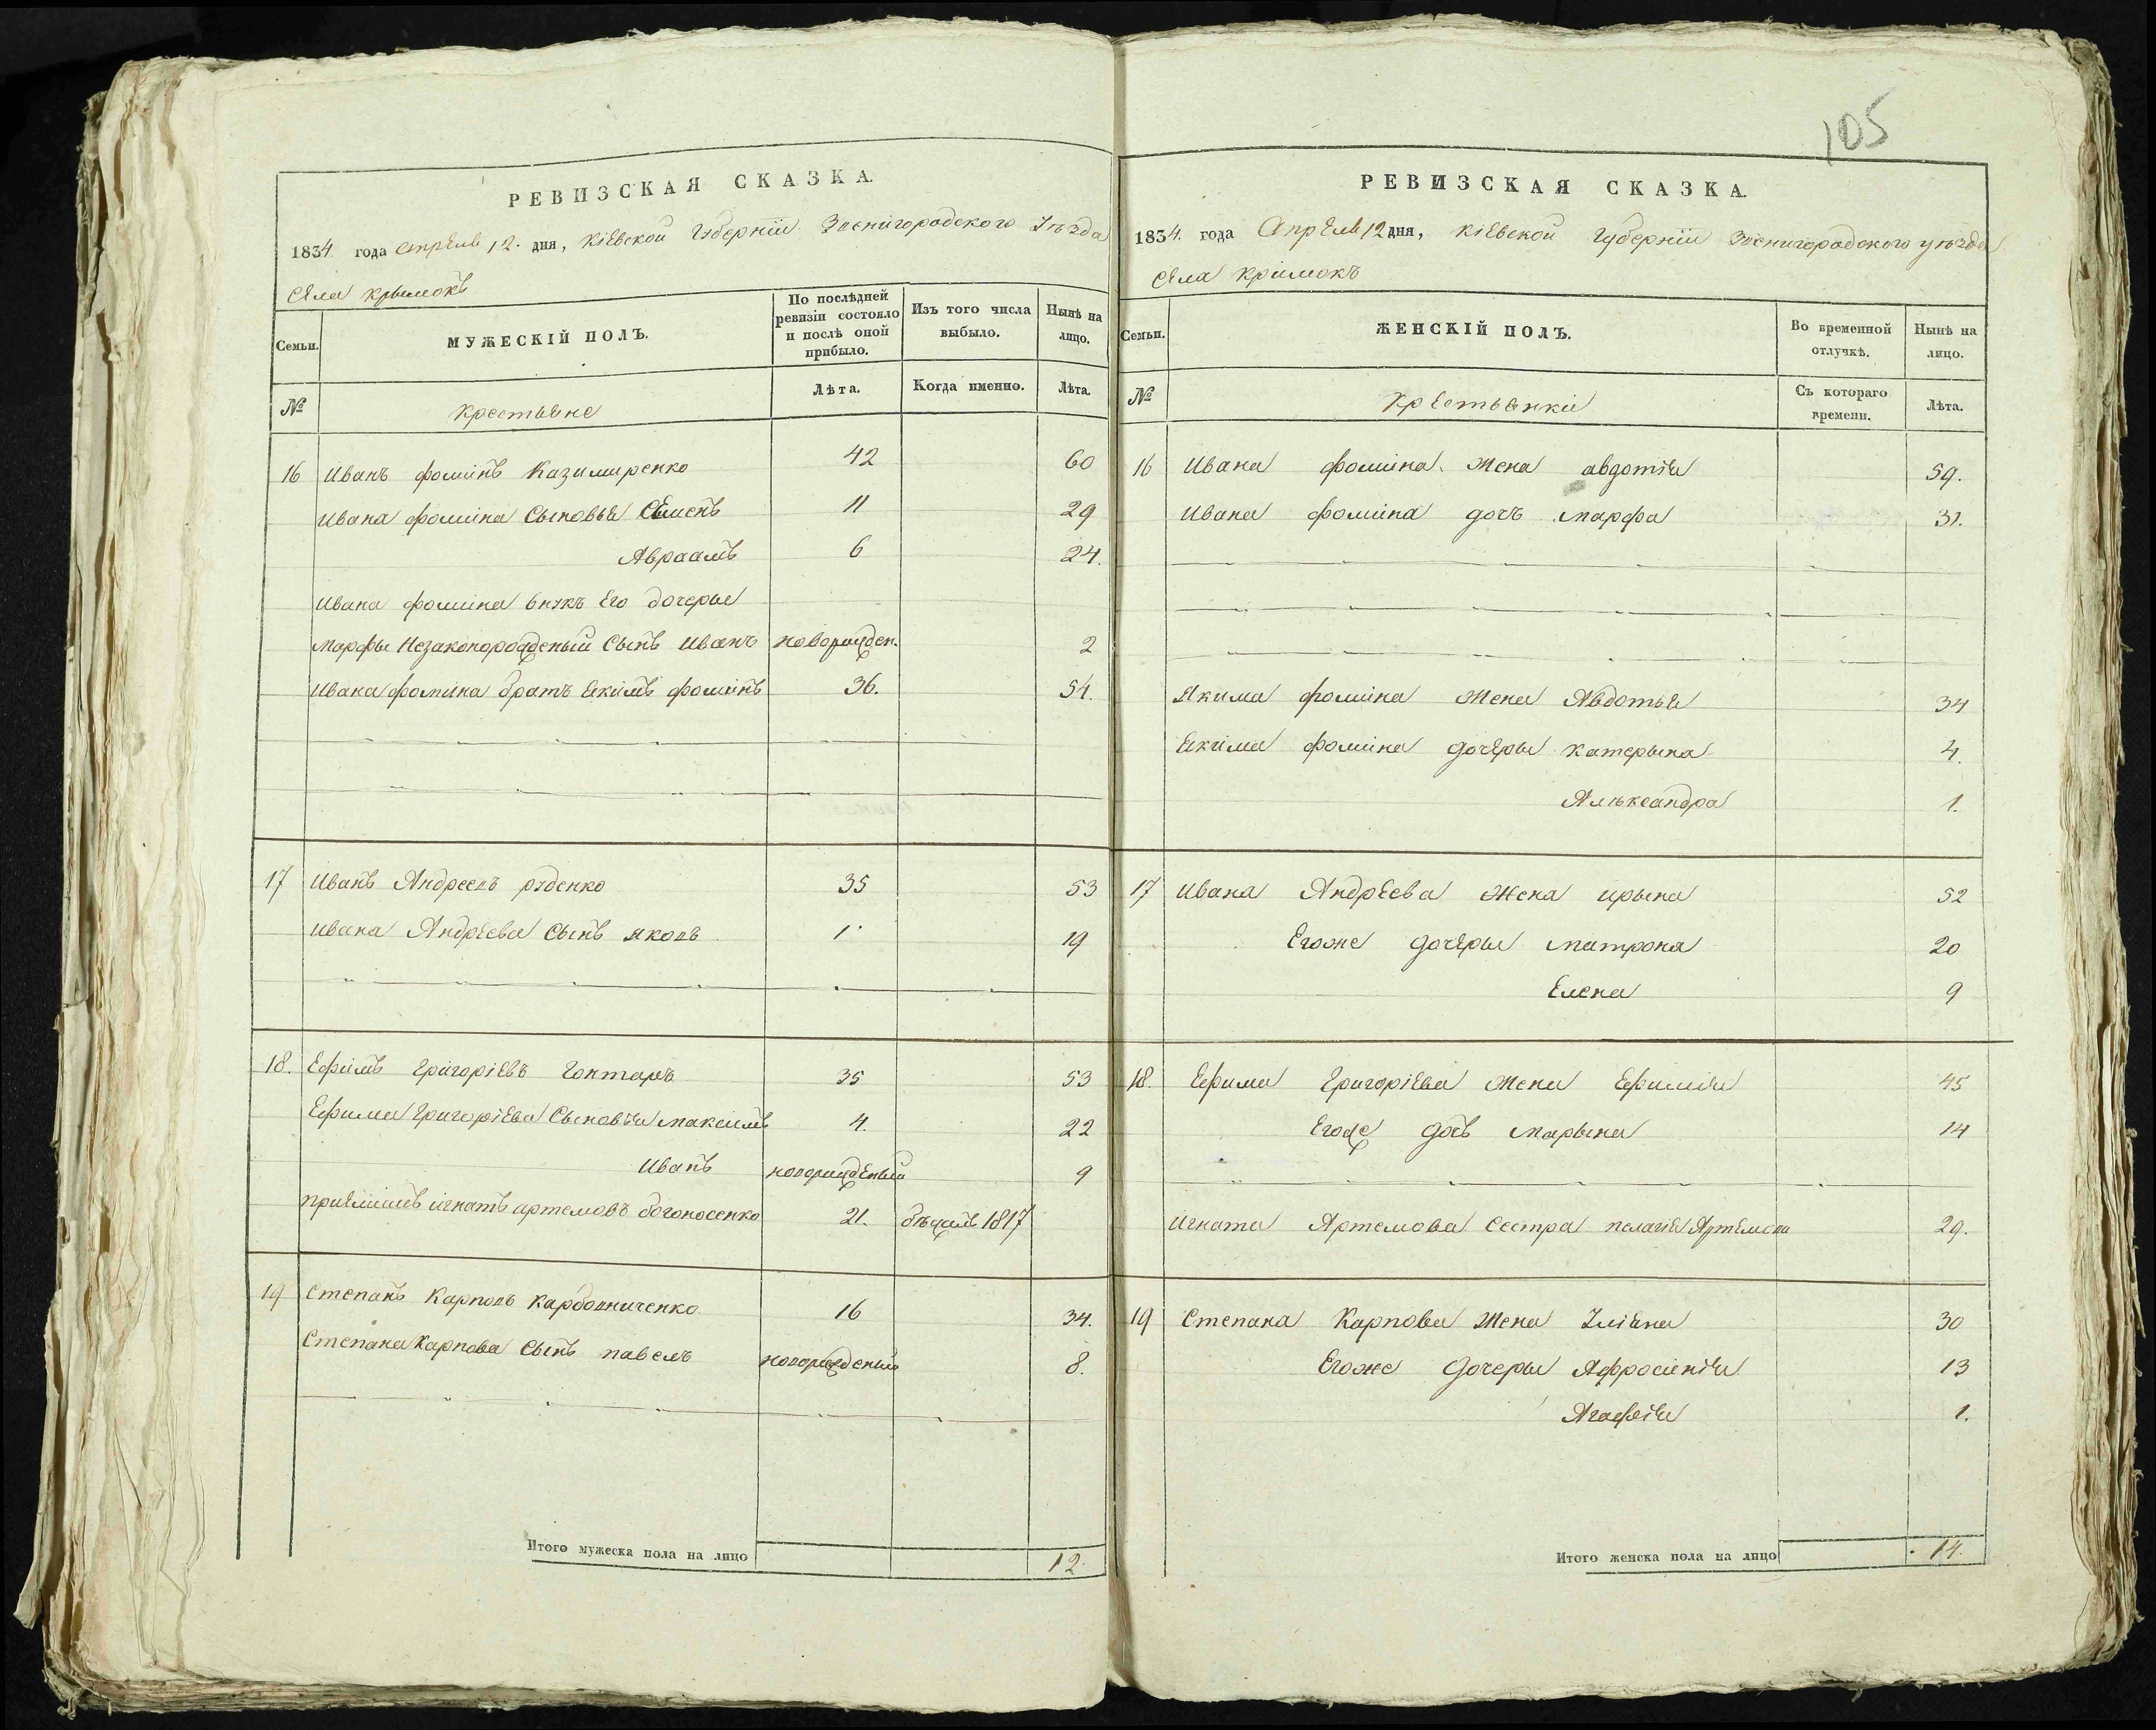 РЕВИЗСКАЯ СКАЗКА.
1834 года Апреля 12. дня, Кіевской Губерніи Звенигородского Уѣзда
Села Крымокъ
Семьи.
МУЖЕСКІЙ ПОЛЪ.
По послѣдней ревизіи состояло и послѣ оной прибыло.
Изъ того числа выбыло.
Нынѣ на лицо.
№
Крестьяне
Лѣта.
Когда именно.
Лѣта.
16 Иванъ Фоминъ Казимиренко 42 60
Ивана Фомина Сыновья Семенъ 11 29
Авраамъ 6 24.
Ивана Фомина внукъ Его дочеры
Марфы Незаконорожденый Сынъ Иванъ новорожден. 2
Ивана Фомина братъ Якимъ Фоминъ 36. 54.
17 Иванъ Андреевъ Руденко 35 53
Ивана Андреева Сынъ Яковъ 1 19
18. Ефимъ Григоріевъ Гонтаръ 35 53
Ефима Григоріева Сыновія Максимъ 4. 22
Иванъ новорожденый 9
Приемышъ Игнатъ Артемовъ Богоносенко 21. бѣжалъ 1817
19 Степанъ Карповъ Карбовниченко 16 34.
Степана Карпова Сынъ Павелъ новорожденый 8.
Итого мужеска пола на лицо 12.
105
РЕВИЗСКАЯ СКАЗКА.
1834. года Апреля 12 дня, Кіевской Губерніи Звенигородского уѣзда
Села Крімокъ
Семьи.
ЖЕНСКІЙ ПОЛЪ.
Во временной отлучкѣ.
Нынѣ на лицо.
№
Крестьянки
Съ котораго времени.
Лѣта.
16 Ивана Фомина Жена Авдотія 59.
Ивана Фомина дочъ Марфа 31.
Якима Фомина Жена Авдотья 34
Якима Фомина дочеры Катерына 4.
Алѣксандра 1.
17 Ивана Андреева Жена Ирына 52
Егоже дочеры Матрона 20
Елена 9
18. Ефима Григоріева Жена Ефимія 45
Егоже дочъ Марына 14
Игната Артемова Сестра Пелагія Артемова 29.
19 Степана Карпова Жена Уліяна 30
Егоже Дочеры Афросинія 13
Агафія 1.
Итого женска пола на лицо 14.